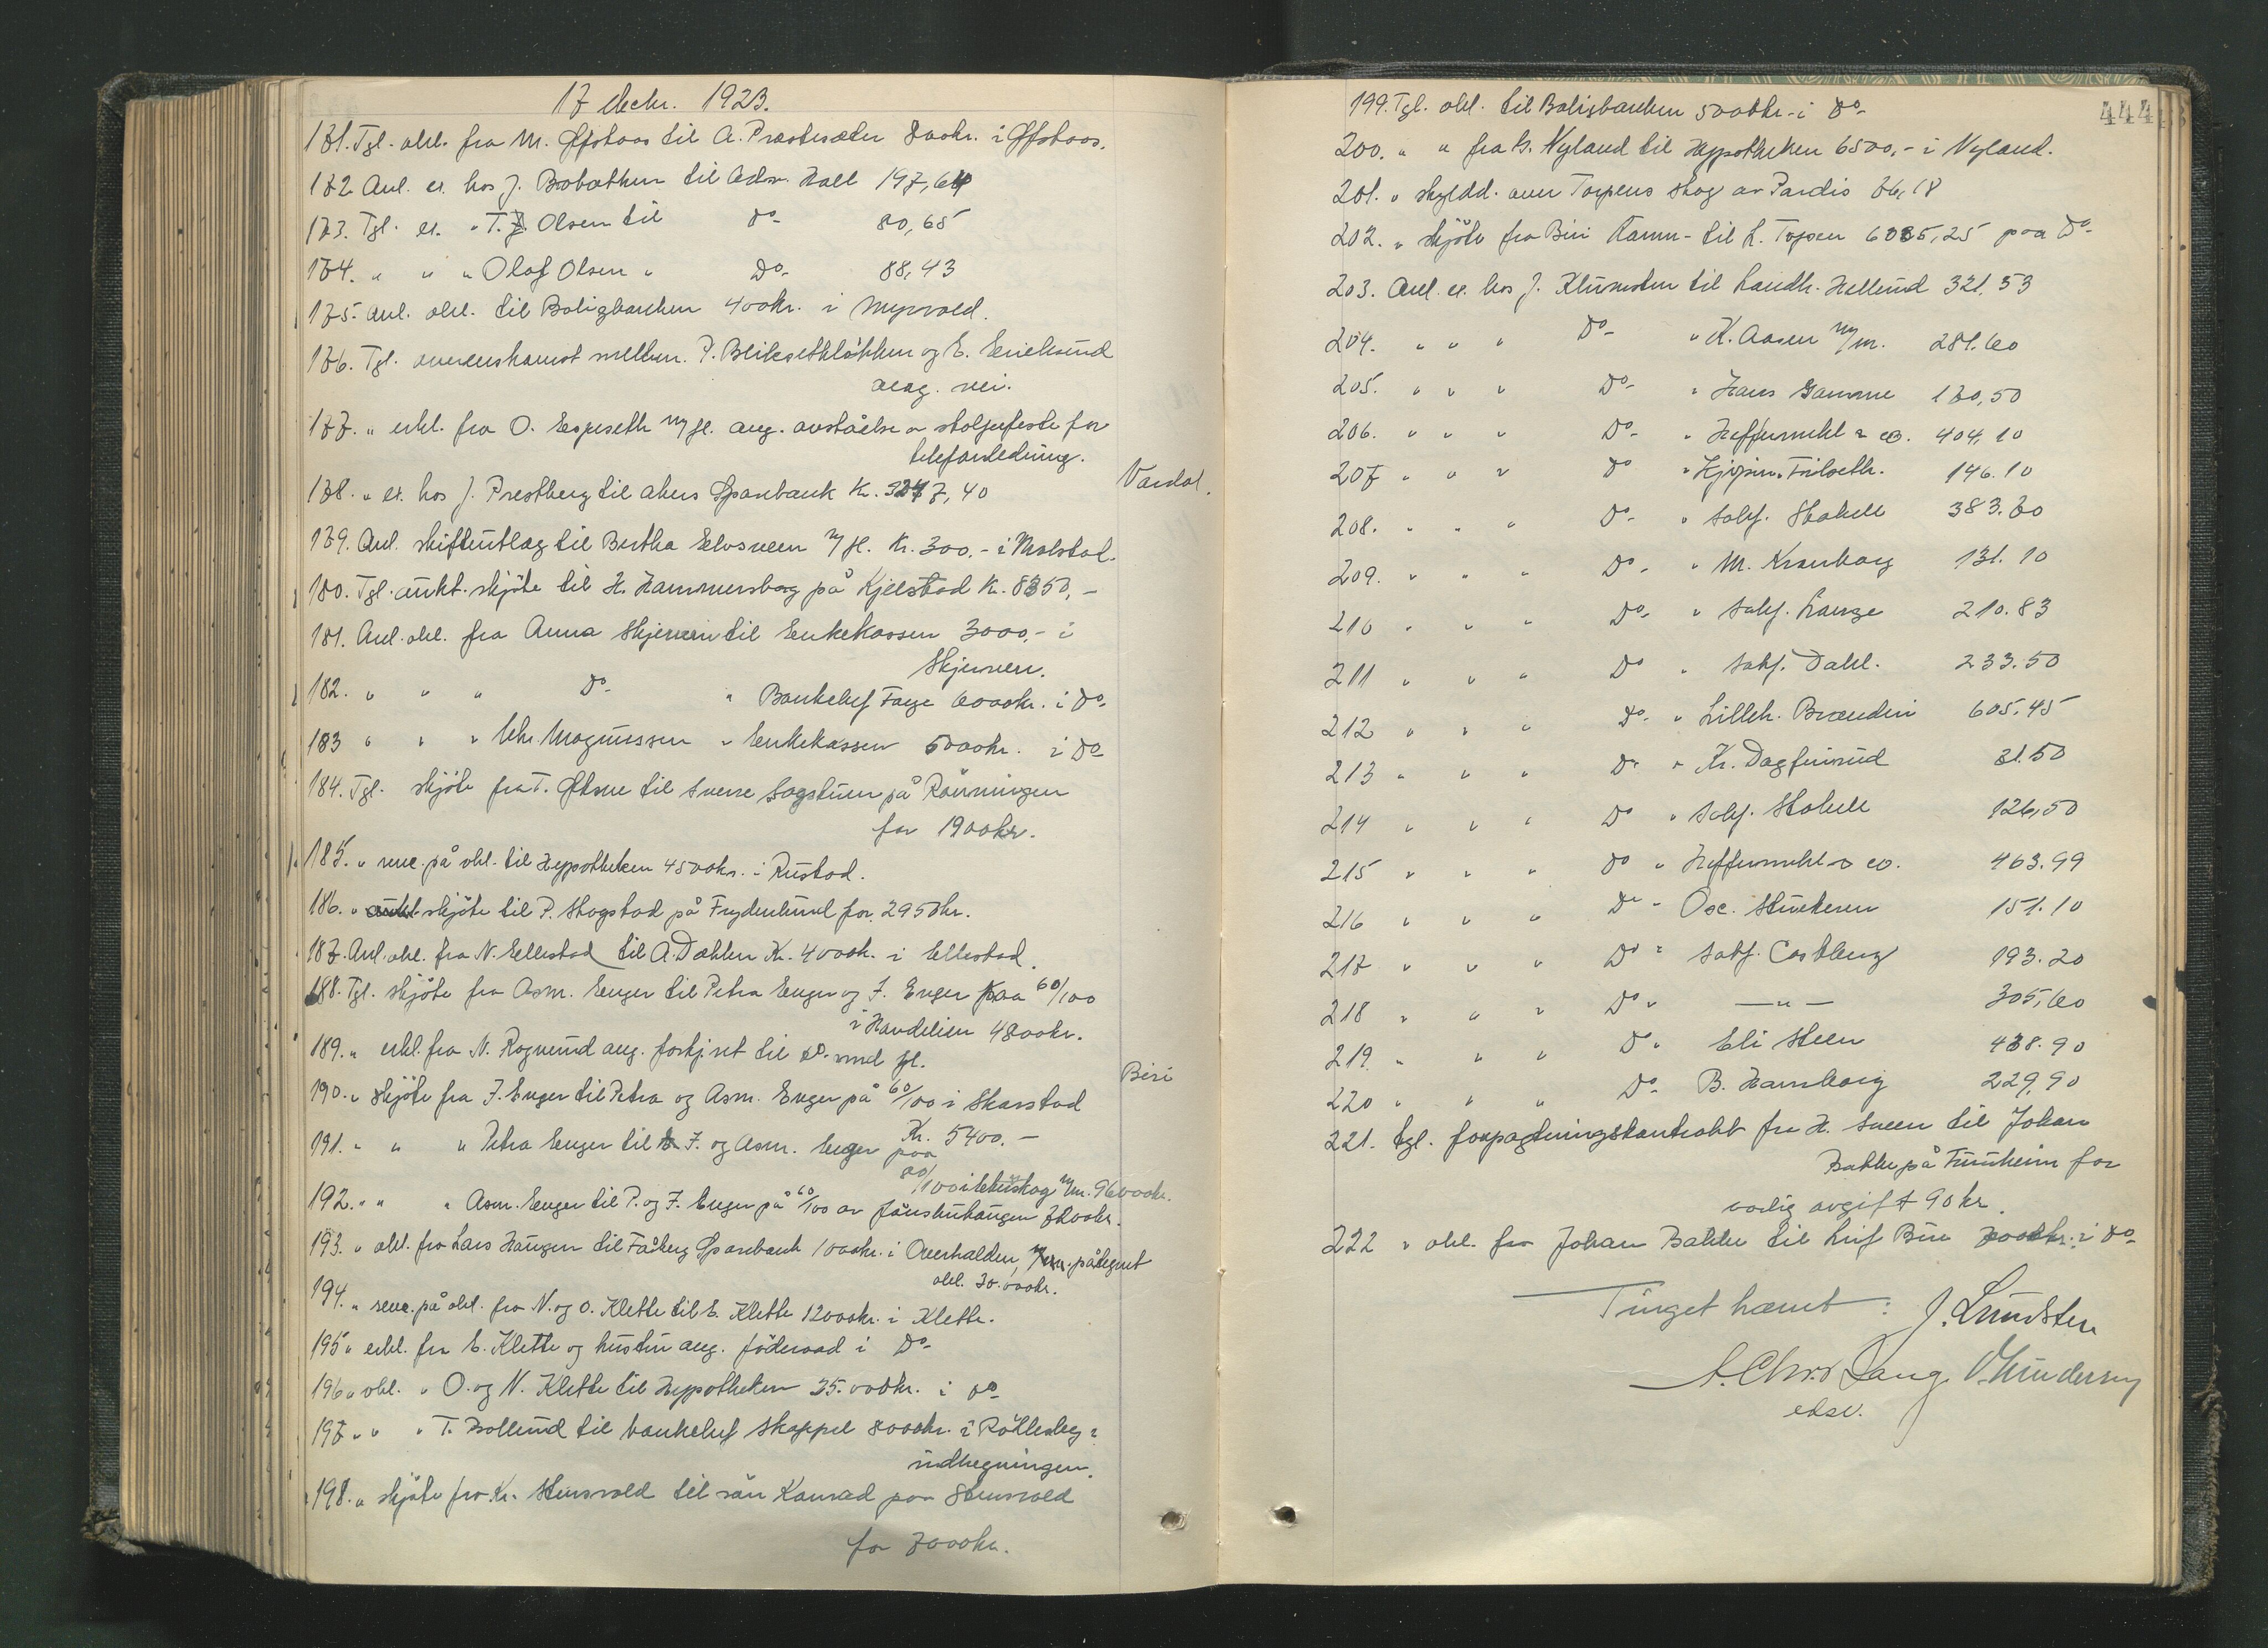 17 decbr. 1923.
171. Tgl. obl. fra M. Øfstaas til A. Præstesæter 800kr. i Øfstaas.
172 Anl. ex. hos J. Brobakken til Adv. Hall 197,64
173. Tgl. ex. " T. J. Olsen til Do- 80,65
174. " " " Olaf Olsen " Do- 88,43
175. Anl. obl. til Boligbanken 400kr. i Myrvold.
176. Tgl. overenskomst mellem P. Blikseth og E. Eriksrud
ang. vei.
177. " erkl. fra O. Espeseth m/fl. ang. avståelse av stolpefeste for
telefonledning.
178. " ex. hos J. Prestberg til Akers Sparebank Kr. 3247,40
Vardal.
179. Anl. skifteutlæg til Bertha Elvsveen m/fl. Kr. 300.- i Molstad.
180. Tgl. aukt. skjöte til H. Hammersborg på Kjelstad Kr. 8350,-
181. Anl. obl. fra Anna Skjerven til Enkekassen 3000,- i
Skjerven.
182. " " " Do- " Bankchef Faye 6000kr. i Do-
183 " " " Chr. Magnussen " Enkekassen 5000kr. i Do-
184. Tgl. skjöte fra T. til Sverre Sagstuen på Rönningen
for 1900kr.
185. " ved. på obl. til Hypotheken 4500kr. i Rustad.
186. " aukt. skjöte til P. Skogstad på Frydenlund for 2950kr.
187. Anl. obl. fra N. Ellestad til A. Dahlen Kr. 4000k. i Ellestad.
188. Tgl. skjöte fra Asm. Enger til Petra Enger og J. Enger paa 60/100
i Havdelien 4800kr.
189. " erkl. fra N. Rognerud ang. forkj.ret til do- med fl.
190. " skjöte fra J. Enger til Petra og Asm. Enger på 60/100 i Skarstad
Biri
Kr. 5400.-
191. " " " Petra Enger til J. og Asm. Enger paa
80/100 i m/m. 9600kr.
192. " " " Asm. Enger til P. og J. Enger på 60/100 av 7200kr.
193. " obl. fra Lars Haugen til Fåberg Sparebank 1000kr. i Overhalden, påtegnet
obl. 30.000kr.
194. " ved. på obl. fra N. og O. Klette til E. Klette 12000kr. i Klette.
195 " erkl. fra E. Klette og hustru ang. föderaad i Do-
196 " obl. " O. og N. Klette til Hypotheken 35.000kr. i do-
197. " " " T. Bollerud til bankchef Skappel 8000kr. i
indhegningen.
198. " skjöte fra Kr. Stensvold til sön Konrad paa Stensvold
for 7000kr.
444
199. Tgl. obl. til Boligbanken 5000kr. i Do-
200. " " fra G. Nyland til Hypotheken 6500,- i Nyland.
201. " skyldd. over Torpens skog av Pardis 76,18
202. " skjöte fra Biri Komm. til L. Torpen 6035,25 paa Do-
203. Anl. ex. hos J. Klundten til Landh. Hellerud 321,53
204. " " " Do- " K. Aasen m/m. 281.60
205. " " " Do- " Hans Gamme 170,50
206. " " " Do- " Heffermehl & co. 404,10
207 " " " Do " Kjøpm. Friseth. 146.10
208. " " " Do- " sakf. Stabell 383.70
209. " " " Do- " M. Kronborg 131.10
210 " " " Do- " sakf. Lange 210.83
211 " " " Do " sakf. Dahl. 233.50
212 " " " Do- " Lilleh. Brænderi 605,45
213 " " " Do " Kr. Dagfinrud 31.50
214 " " " Do " sakf. Stabell 126,50
215 " " " Do " Heffermehl & co. 463.99
216 " " " Do " Osc. Stuveren 151.10
217 " " " Do " sakf. Castberg 193.20
218 " " " Do " — " — 305,60
219. " " " Do " Eli Steen 438.90
220 " " " Do- B. Hamborg 229,90
221. Tgl. forpagtningskontrakt fra H. Sveen til Johan
Bakke på Furuheim for
aarlig avgift 90kr.
222 " obl. fra Johan Bakke til Leif Bue 7000kr. i Do-
Tinget hævet: J. Lundsten
A. Chr. Lang O. Gundersen
edsv.